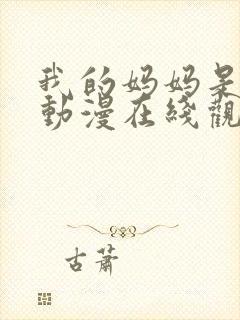 我的妈妈是
動漫在綫觀
古蕭